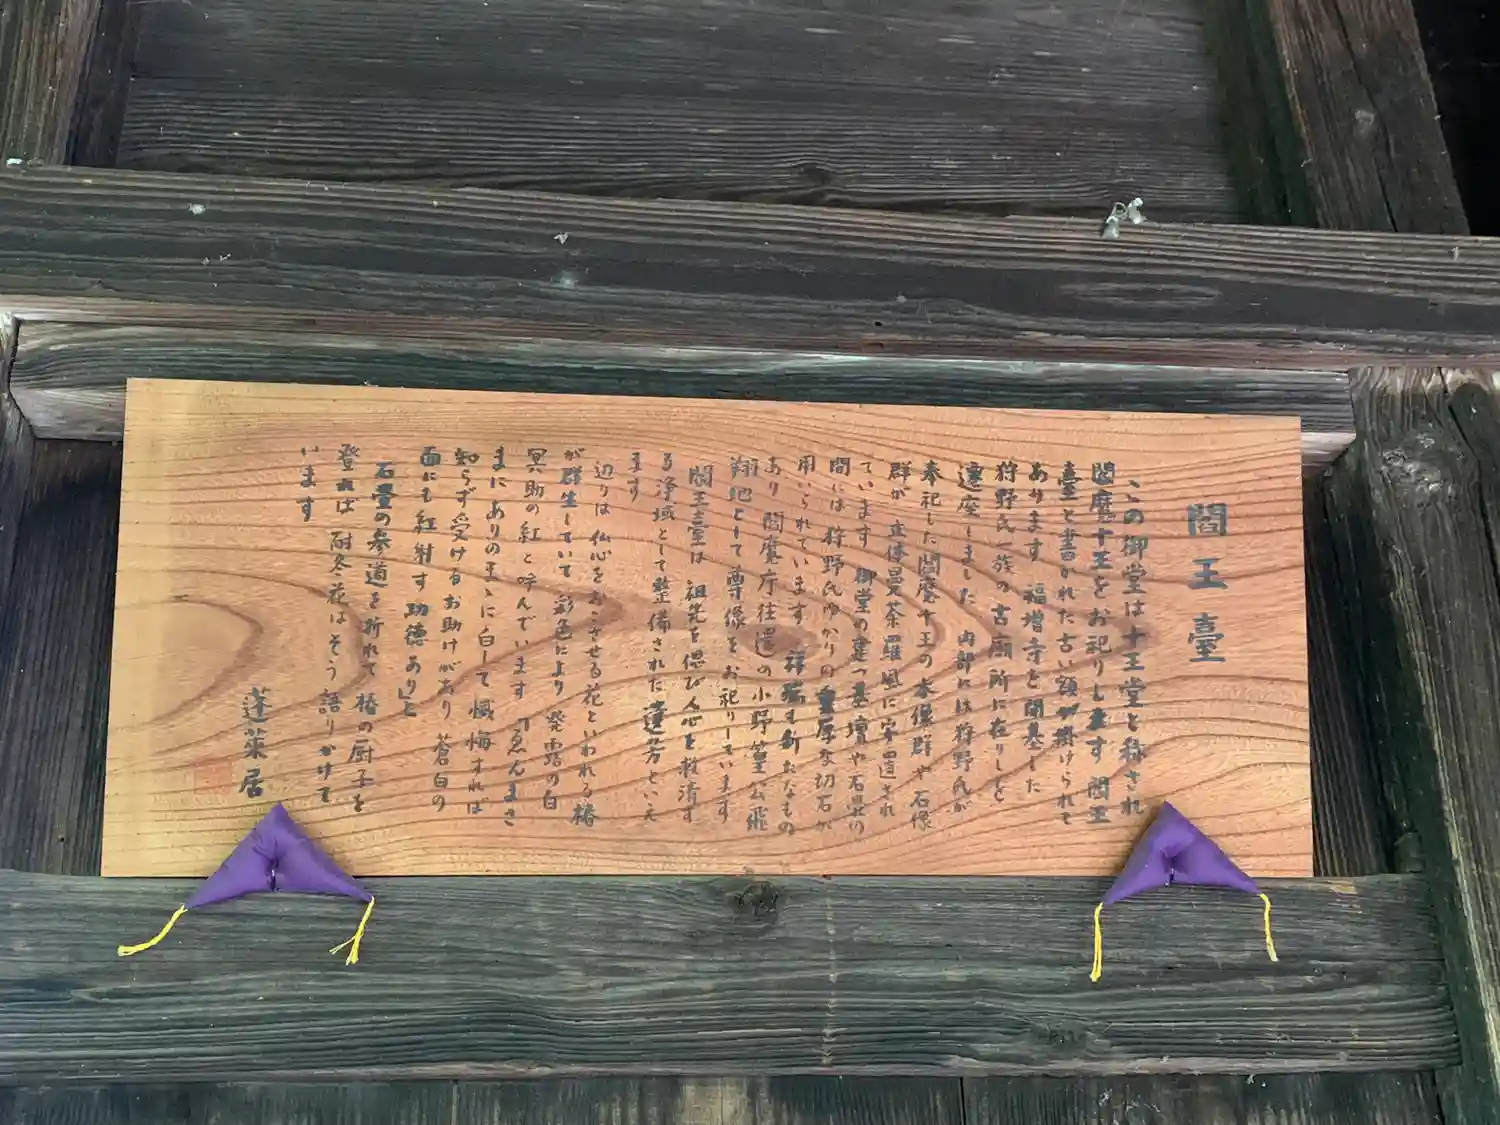 閻王臺
この御堂は十王堂と称され
閻魔十王をお祀りします 閻王
臺と書かれた古い額が掛けられて
あります 福増寺を開基した
狩野氏一族の古廟所に在りしを
遷座しました 内部には狩野氏が
奉祀した閻魔十王の本像群や石像
群が 立体曼荼羅風に安置され
ています 御堂の建つ基壇や石畳の
間には 狩野氏ゆかりの重厚な切石が
用いられています 祥瑞も新たなもの
あり 閻魔庁往還の小野篁公飛
翔地として尊像をお祀りしています
閻王臺は 祖先を偲び人心を救済す
る浄域として整備された蓮芳といえ
ます
辺りは 仏心をおこさせる花といわれる椿
が群生していて 彩色により 発露の白
冥助の紅と呼んでいます 「ゑんまさ
まにありのまゝに白して懺悔すれば
知らず受けるお助けがあり 蒼白の
面にも紅射す 功徳あり」と
石畳の参道を折れて 椿の厨子を
登れば 耐冬花はそう 語りかけて
います
蓬莱居